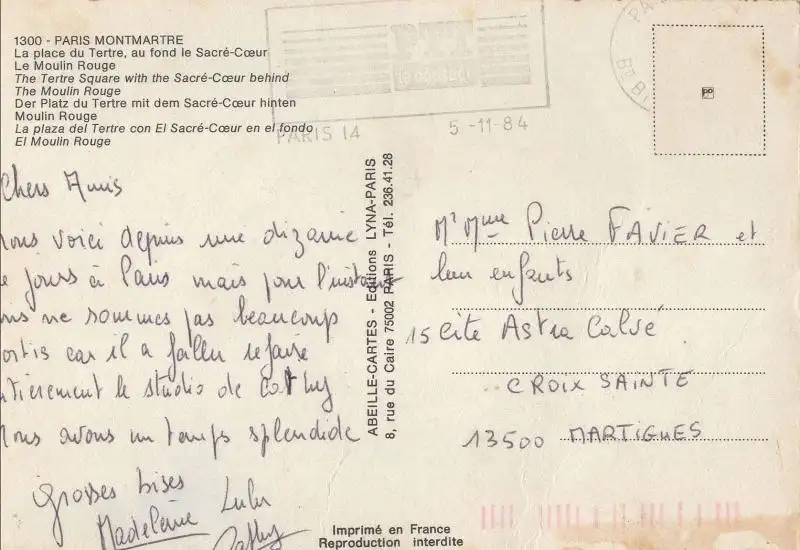 1300 - PARIS MONTMARTRE
La place du Tertre, au fond le Sacré-Cœur
Le Moulin Rouge
The Tertre Square with the Sacré-Cœur behind
The Moulin Rouge
Der Platz du Tertre mit dem Sacré-Cœur hinten
Moulin Rouge
La plaza del Tertre con El Sacré-Cœur en el fondo
El Moulin Rouge
PARIS 14
5 -11-84
Chers Amis
nous voici depuis une dizaine
de jours à Paris mais pour l'instant
nous ne sommes pas beaucoup
sortis car il a fallu refaire
entièrement le studio de Cathy
Nous avons un temps splendide
Grosses bises
Madeleine Lulu
Cathy
ABEILLE-CARTES - Editions LYNA-PARIS
8, rue du Caire 75002 PARIS - Tél. 236.41.28
Mr Mme Pierre FAVIER et
leurs enfants
15 Cité Astra Calvé
CROIX SAINTE
13500 MARTIGUES
Imprimé en France
Reproduction interdite